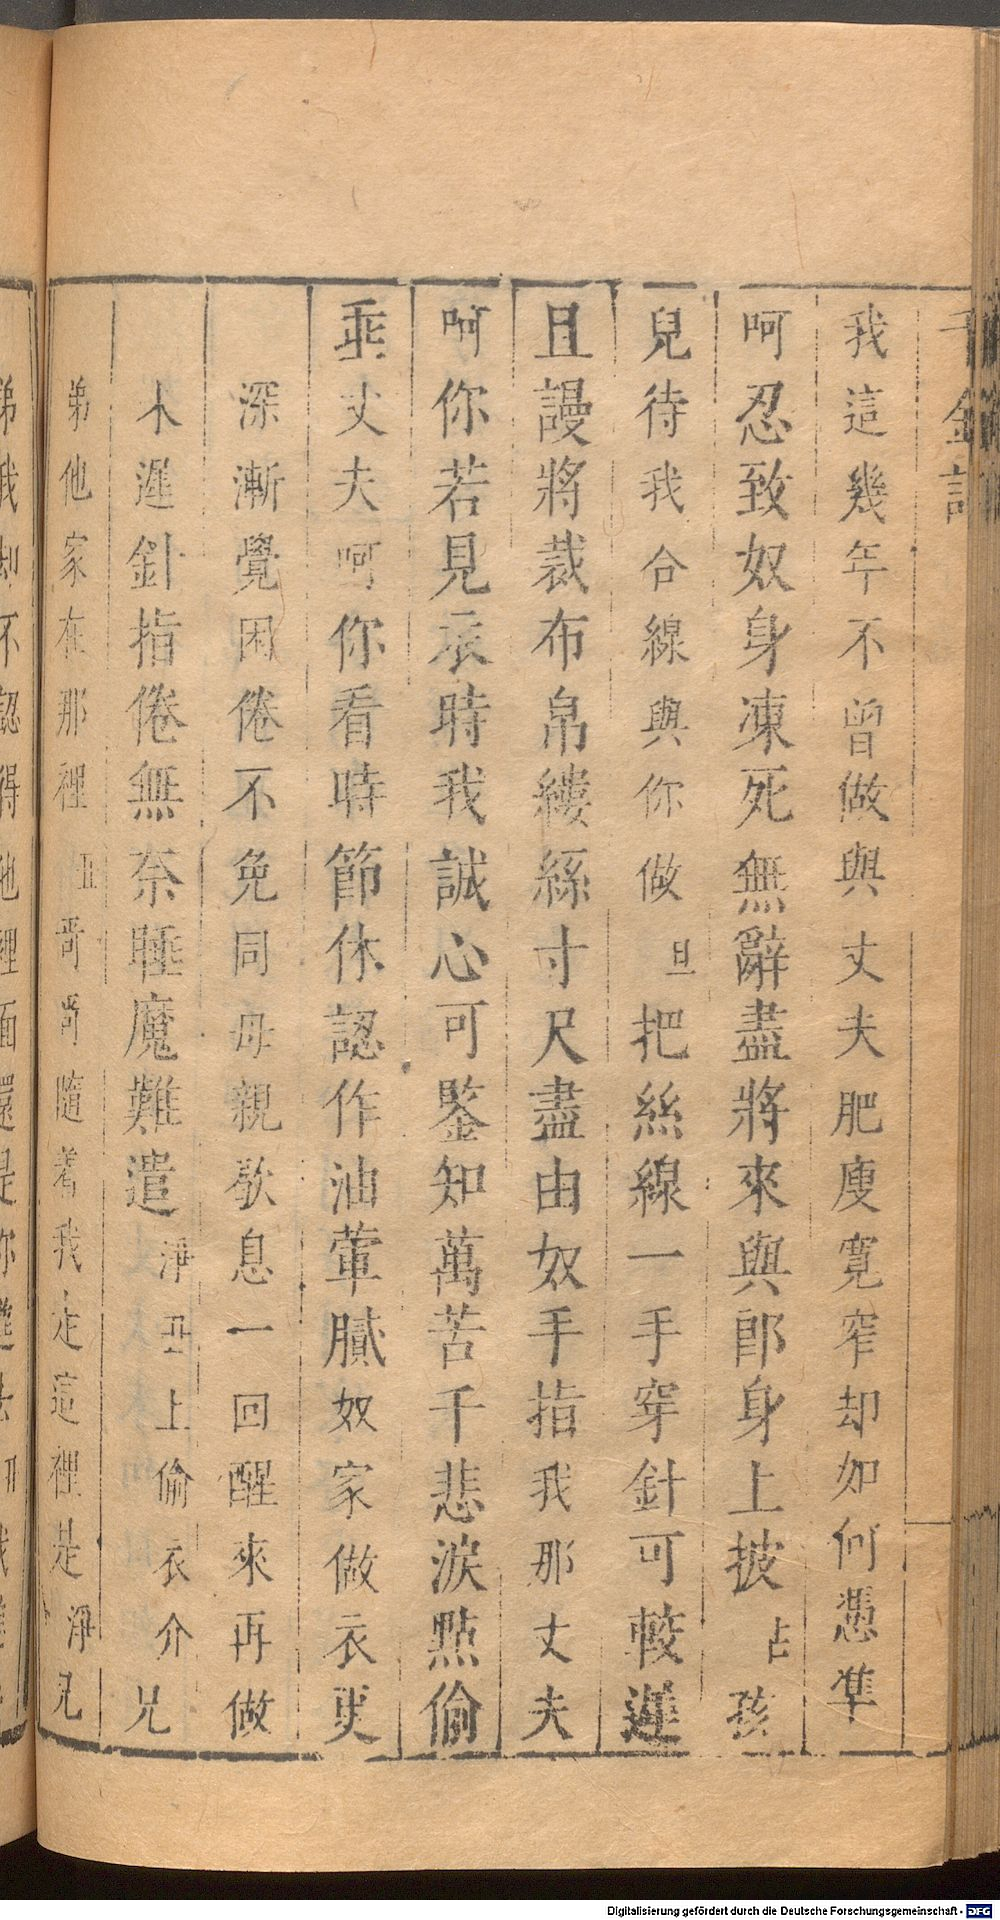 千金記
我這幾年不曾做與丈夫肥廋寬窄却如何憑準
呵忍致奴身凍死無辭盡將來與郎身上披占孩
兒待我合線與你做旦把絲線一手穿針可較遲
且謾將裁布帛縷絲寸尺盡由奴手指我那丈夫
呵你若見衣時我誠心可鑒知萬苦千悲淚點偷
垂丈夫呵你看時節休認作油葷膩奴家做衣更
深漸覺困倦不免同母親歇息一回醒來再做
木遲針指倦無奈睡魔難遣淨丑上偷衣介兄
弟他家在那裡丑哥哥隨着我走這裡是淨兄
弟我却不認得他裡面還是你進去丑我
Digitalisierung gefördert durch die Deutsche Forschungsgemeinschaft - DFG